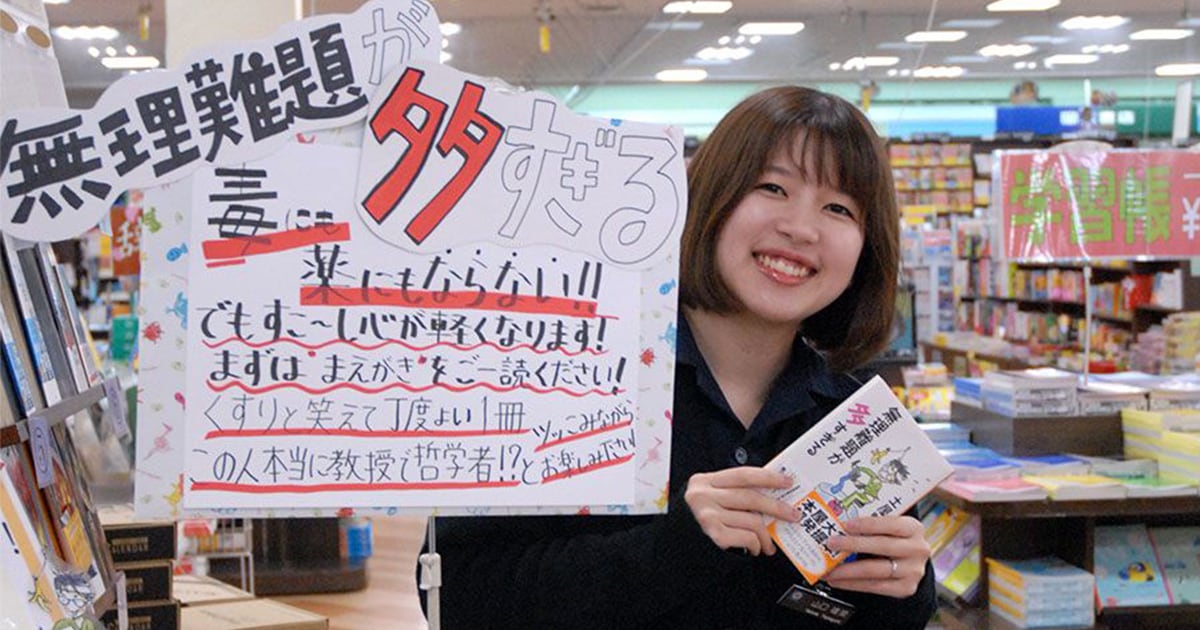 無理難題が
多すぎる
毒にも
薬にもならない!!
でもすこ〜し心が軽くなります!
まずは"まえがき"をご一読ください!
くすりと笑えて丁度よい1冊
この人本当に教授で哲学者!?と
ツッこみながら
お楽しみ下さい
無理難題が
多すぎる
土屋
学習帳
CALENDAR